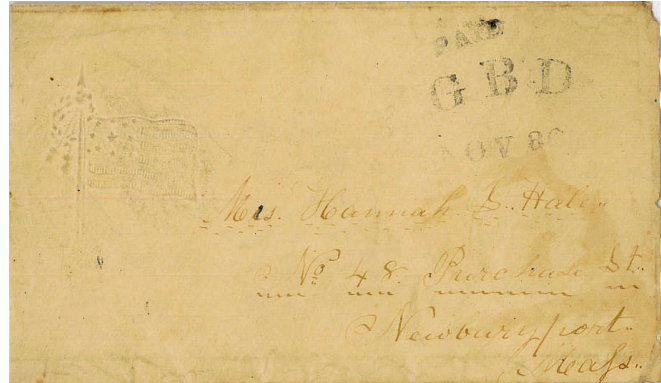 PAID
G B D
NOV 30
Mrs. Hannah B. Hale.
No 48 Purchase St.
Newburyport.
Mass.